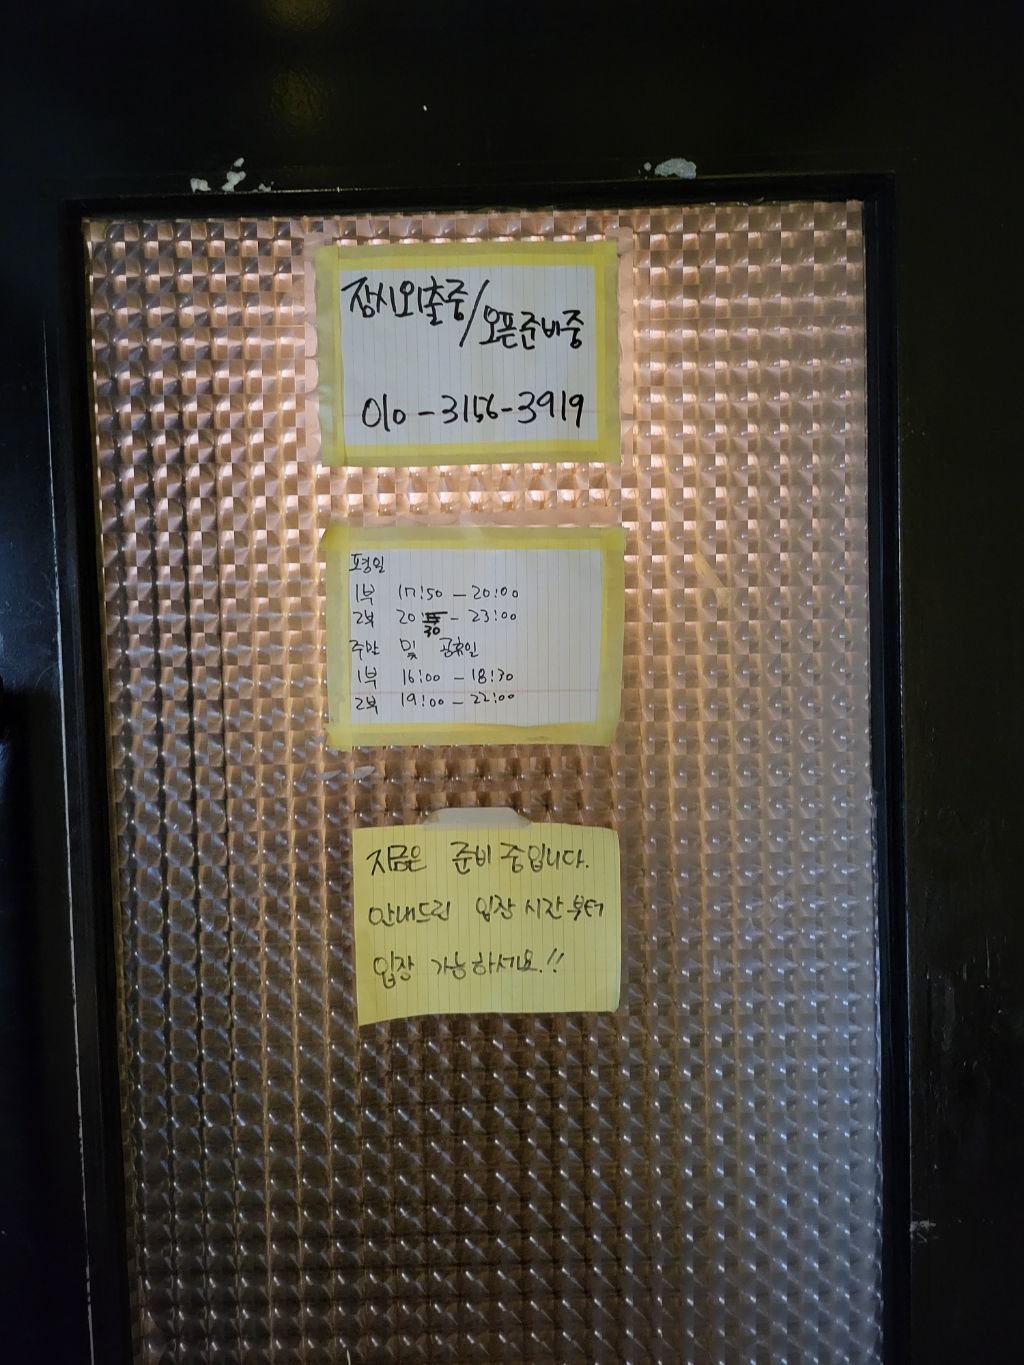 잠시외출중/오픈준비중
010-3156-3919
평일
1부 17:50 - 20:00
2부 20:30 - 23:00
주말 및 공휴일
1부 16:00 - 18:30
2부 19:00 - 22:00
지금은 준비 중입니다.
안내드린 입장 시간부터
입장 가능하세요.!!